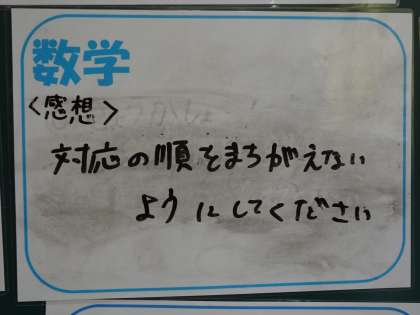 数学
<感想>
対応の順をまちがえない
ようにしてください